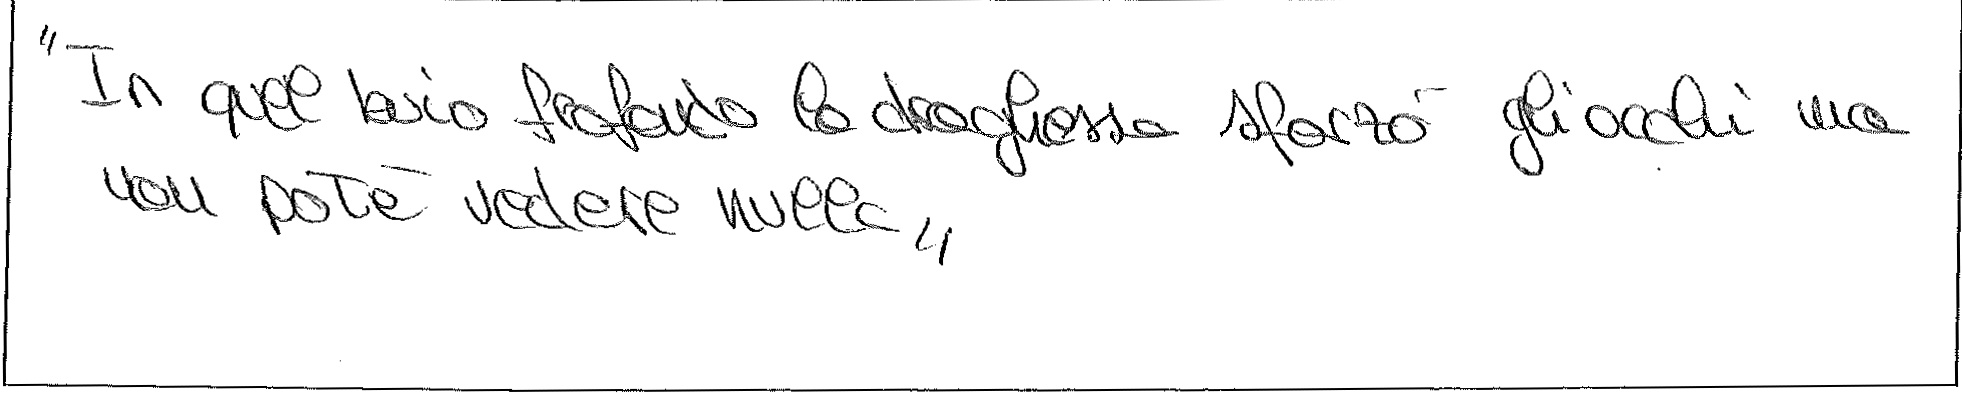 "In quel buio profondo la draghessa sforzò gli occhi ma
non potè vedere nulla"